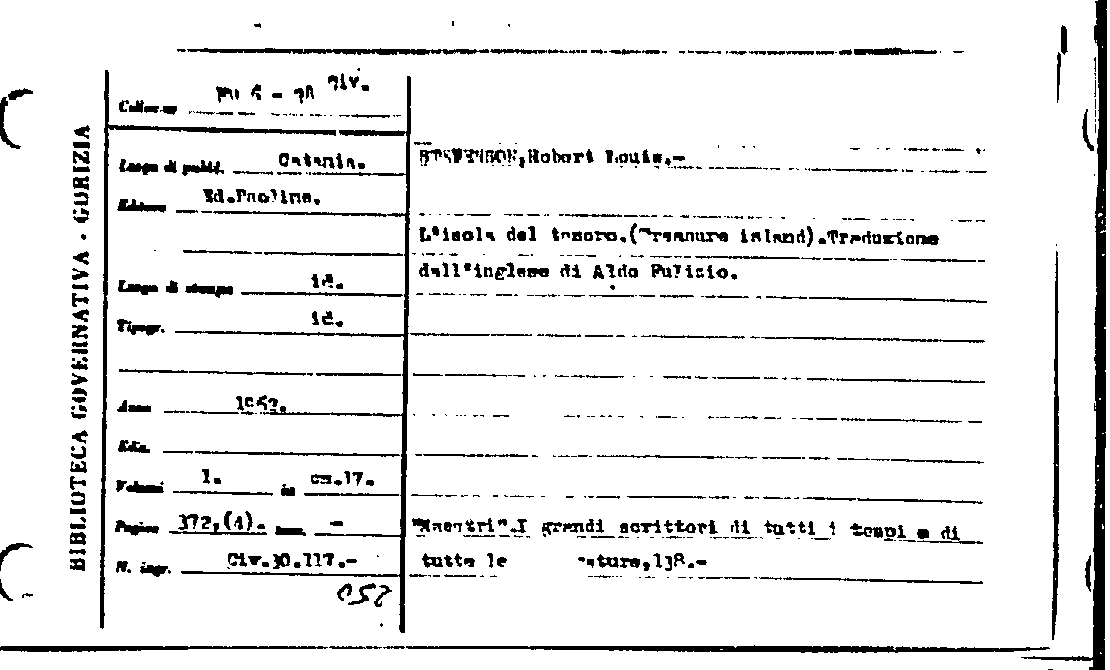 BIBLIOTECA GOVERNATIVA - GORIZIA
Civ.
Luogo di pubbl. Catania.
Editore Ed.Paoline.
Luogo di stampa id.
Tipogr. id.
Anno
Ediz.
Volumi 1. in cm.17.
Pagine 372,(4). -
N. ingr. Civ.30.117.-
STEVENSON,Robert Louis.-
L'isola del tesoro.(Treasure island).Traduzione
dall'inglese di Aldo
"Maestri".I grandi scrittori di tutti i tempi e di
tutte le 138.-